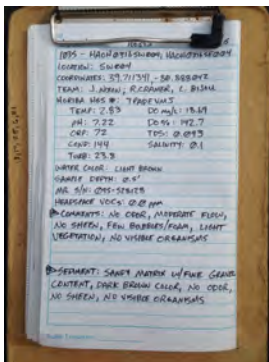 LOCATION: SW#04
COORDINATES: 39.711341, -80.828042
TEAM: J. NIXON, R. CRAMER, C. BIJAU
HORIBA MDS #: 7PADEVMJ
TEMP: 2.83 DO mg/L: 18.69
pH: 7.22 DO%: 142.7
ORP: 72 TDS: 0.093
COND: 144 SALINITY: 0.1
TURB: 23.8
WATER COLOR: LIGHT BROWN
SAMPLE DEPTH: 0.5'
HEADSPACE VOCS: 0.0 ppm
COMMENTS: NO ODOR, MODERATE FLOW,
NO SHEEN, FEW BUBBLES/FOAM, LIGHT
VEGETATION, NO VISIBLE ORGANISMS
SEDIMENT: SANDY MATRIX W/ FINE GRAVEL
CONTENT, DARK BROWN COLOR, NO ODOR,
NO SHEEN, NO VISIBLE ORGANISMS